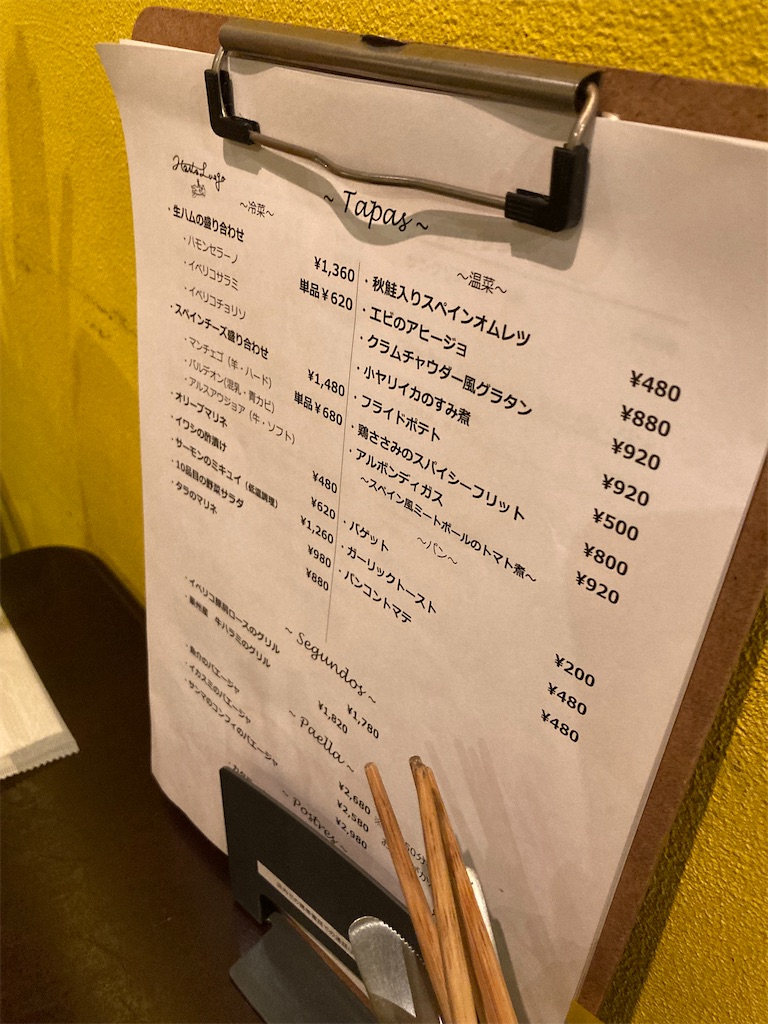 Hasta Luego
~ Tapas ~
～冷菜～
・生ハムの盛り合わせ
・ハモンセラーノ ¥1,360
・イベリコサラミ 単品¥620
・イベリコチョリソ
・スペインチーズ盛り合わせ
・マンチェゴ（羊・ハード） ¥1,480
・バルデオン(混乳・青カビ) 単品¥680
・アルスアウジョア（牛・ソフト）
・オリーブマリネ ¥480
・イワシの酢漬け ¥620
・サーモンのミキュイ（低温調理） ¥1,260
・10品目の野菜サラダ ¥980
・タラのマリネ ¥880
～温菜～
・秋鮭入りスペインオムレツ ¥480
・エビのアヒージョ ¥880
・クラムチャウダー風グラタン ¥920
・小ヤリイカのすみ煮 ¥920
・フライドポテト ¥500
・鶏ささみのスパイシーフリット ¥800
・アルボンディガス ¥920
～スペイン風ミートボールのトマト煮～
～パン～
・バゲット ¥200
・ガーリックトースト ¥480
・パンコントマテ ¥480
~ Segundos ~
・イベリコ豚肩ロースのグリル ¥1,780
牛ハラミのグリル ¥1,820
~ Paella ~
・魚介のパエージャ ¥2,680
・イカスミのパエージャ ¥2,580
・サンマのコンフィのパエージャ ¥2,980
~ Postres ~